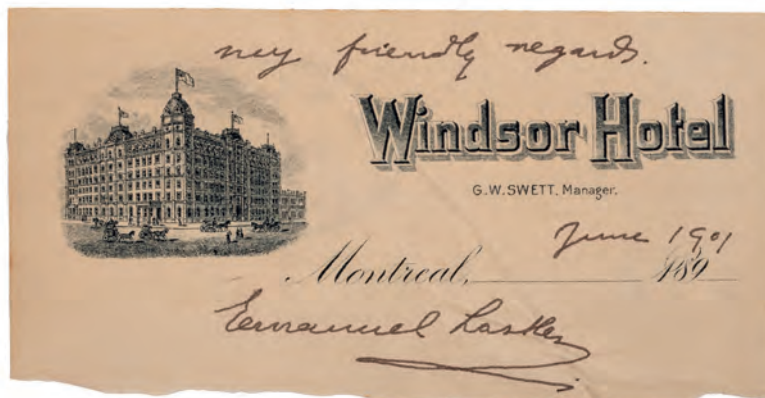 my friendly regards.
Windsor Hotel
G.W.SWETT, Manager.
June 1901
Montreal, 189
Emanuel Lasker